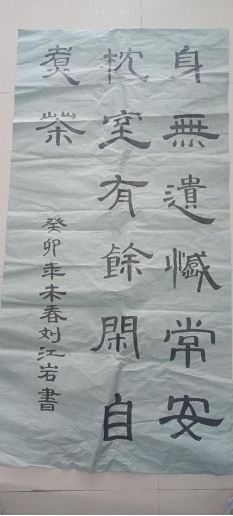 身無遺憾常安
枕室有餘閑自
煑茶
癸卯年末春刘江岩書